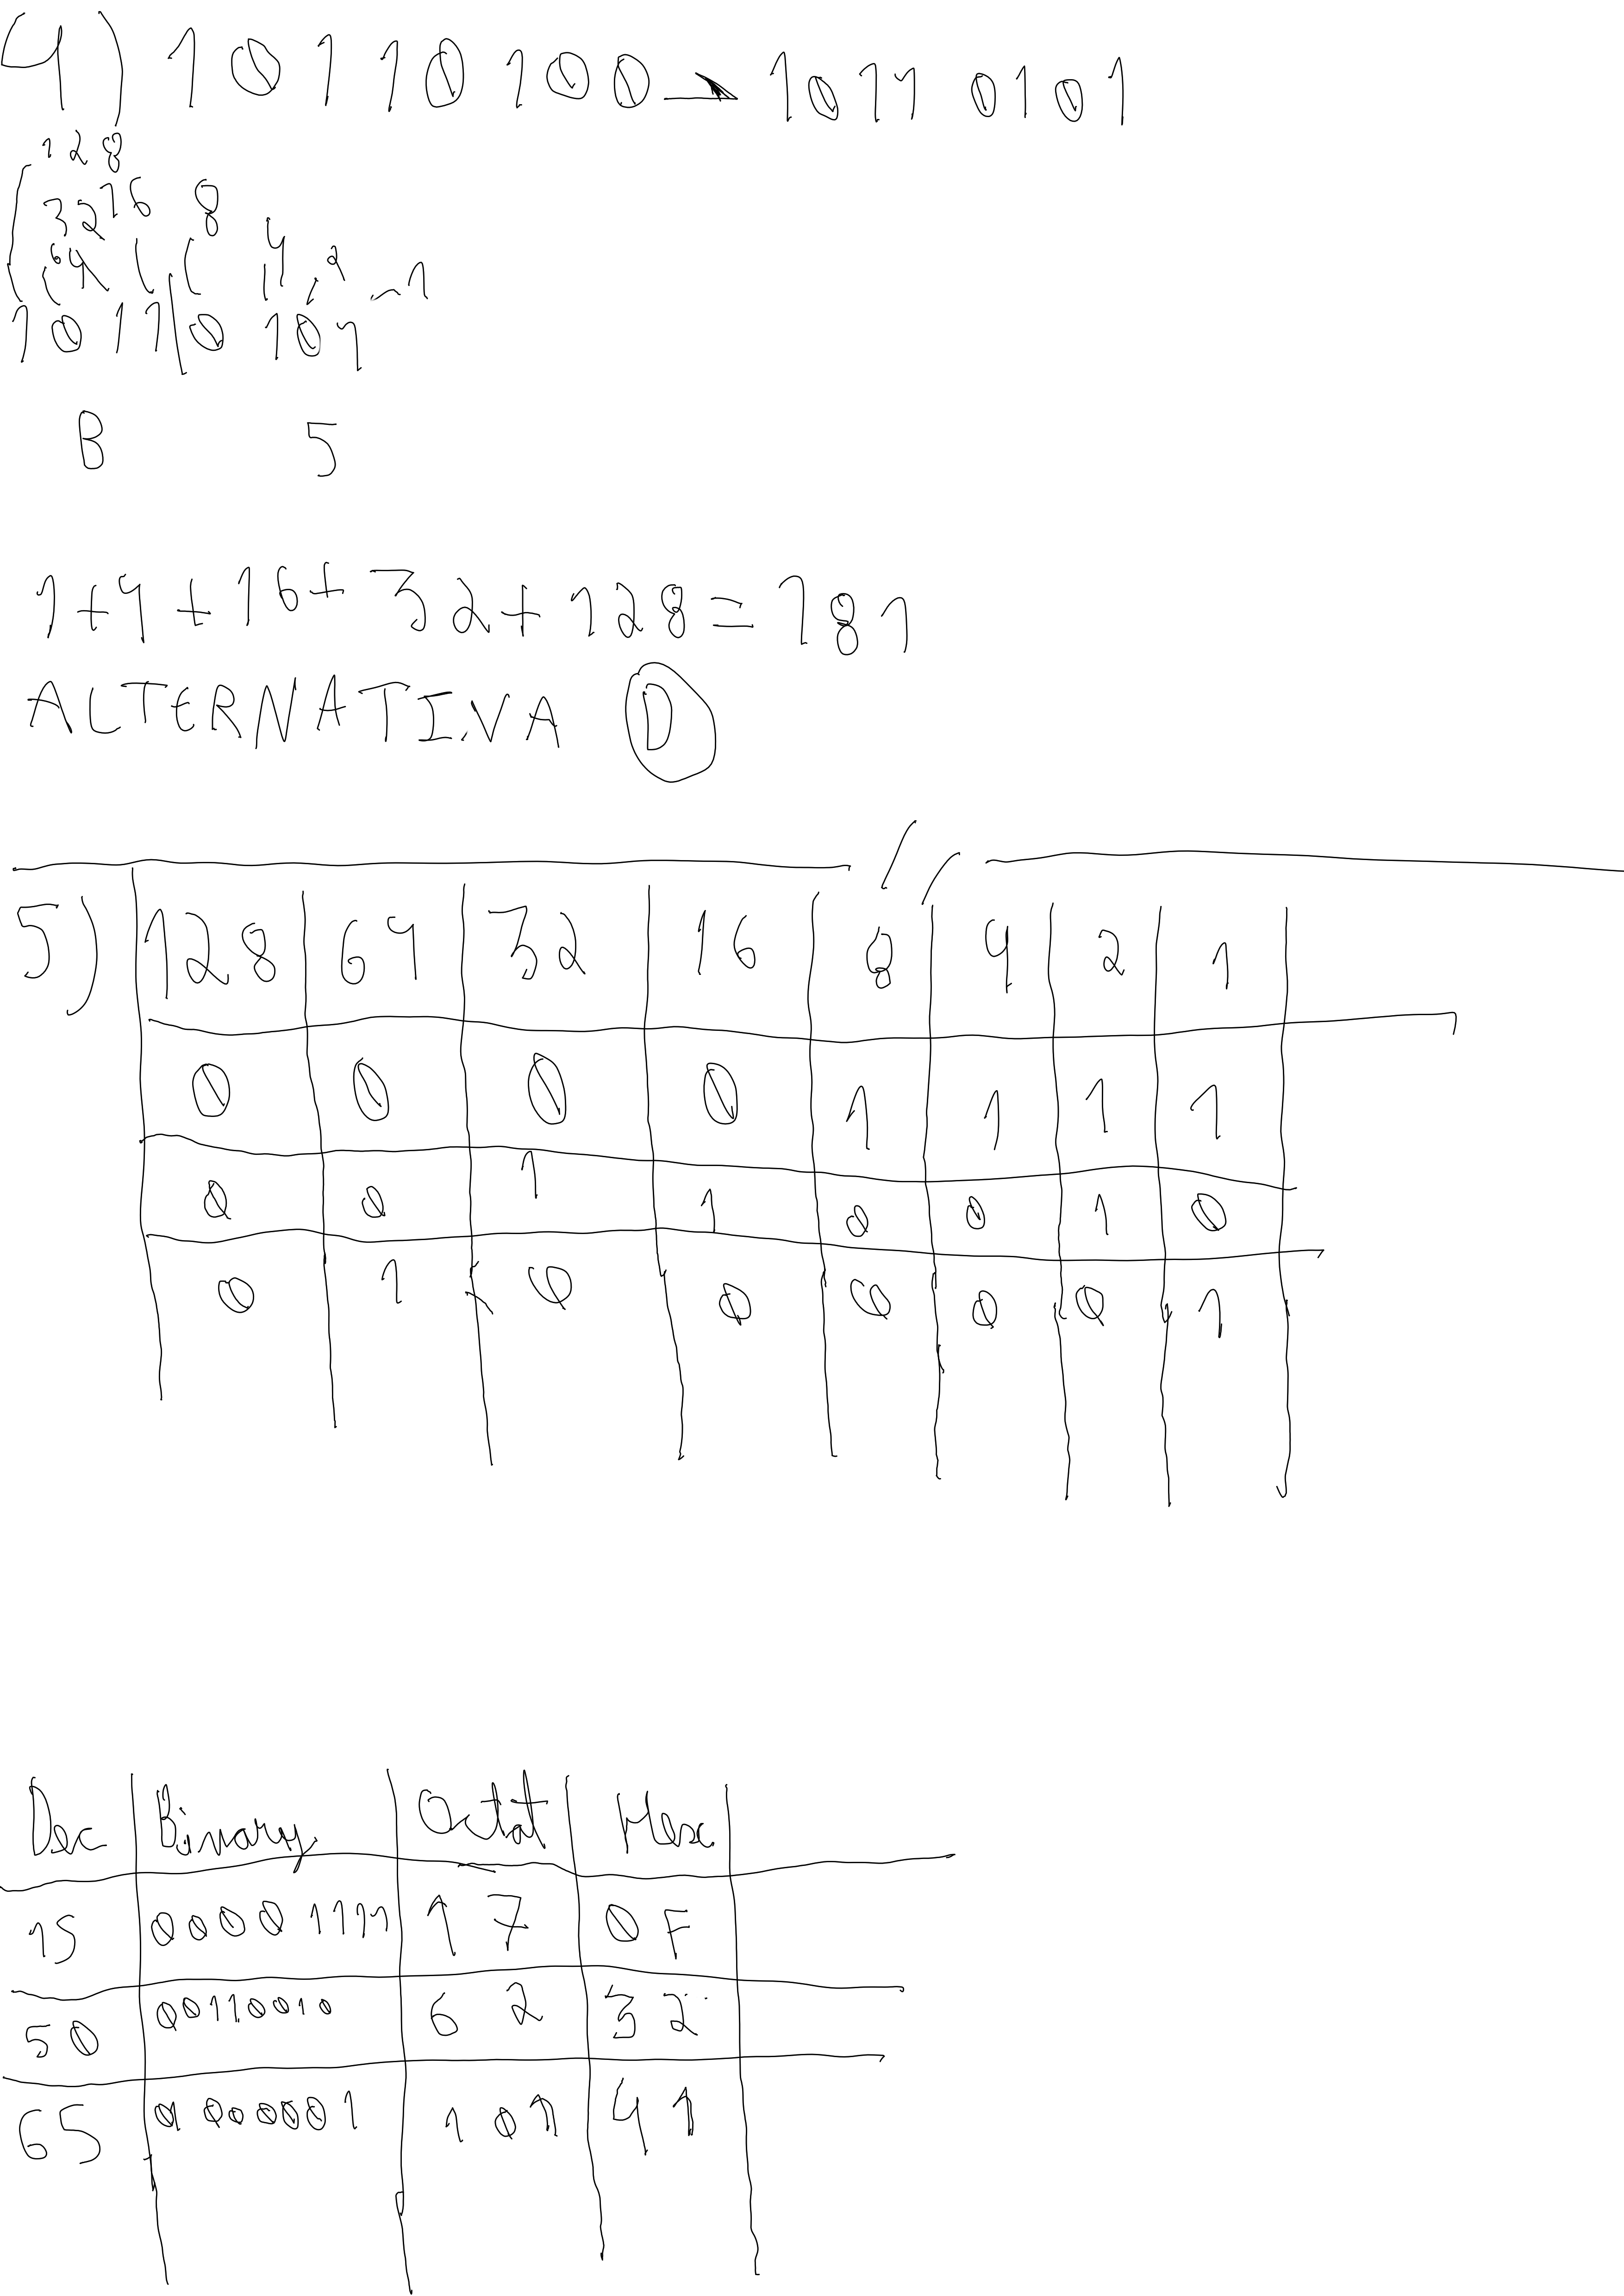 4) 1 0 1 1 0 1 0 0 → 1 0 1 1 0 1 0 1
128
32 16 8
64 4 2 1
1 0 1 1 0 1 0 1
B 5
1 + 4 + 16 + 32 + 128 = 181
ALTERNATIVA D
5) 128 64 32 16 8 4 2 1
0 0 0 0 1 1 1 1
0 0 1 1 0 0 1 0
0 1 0 0 0 0 0 1
Dec Binary Octal Hex
15 00001111 17 0F
50 00110010 62 32
65 01000001 101 41